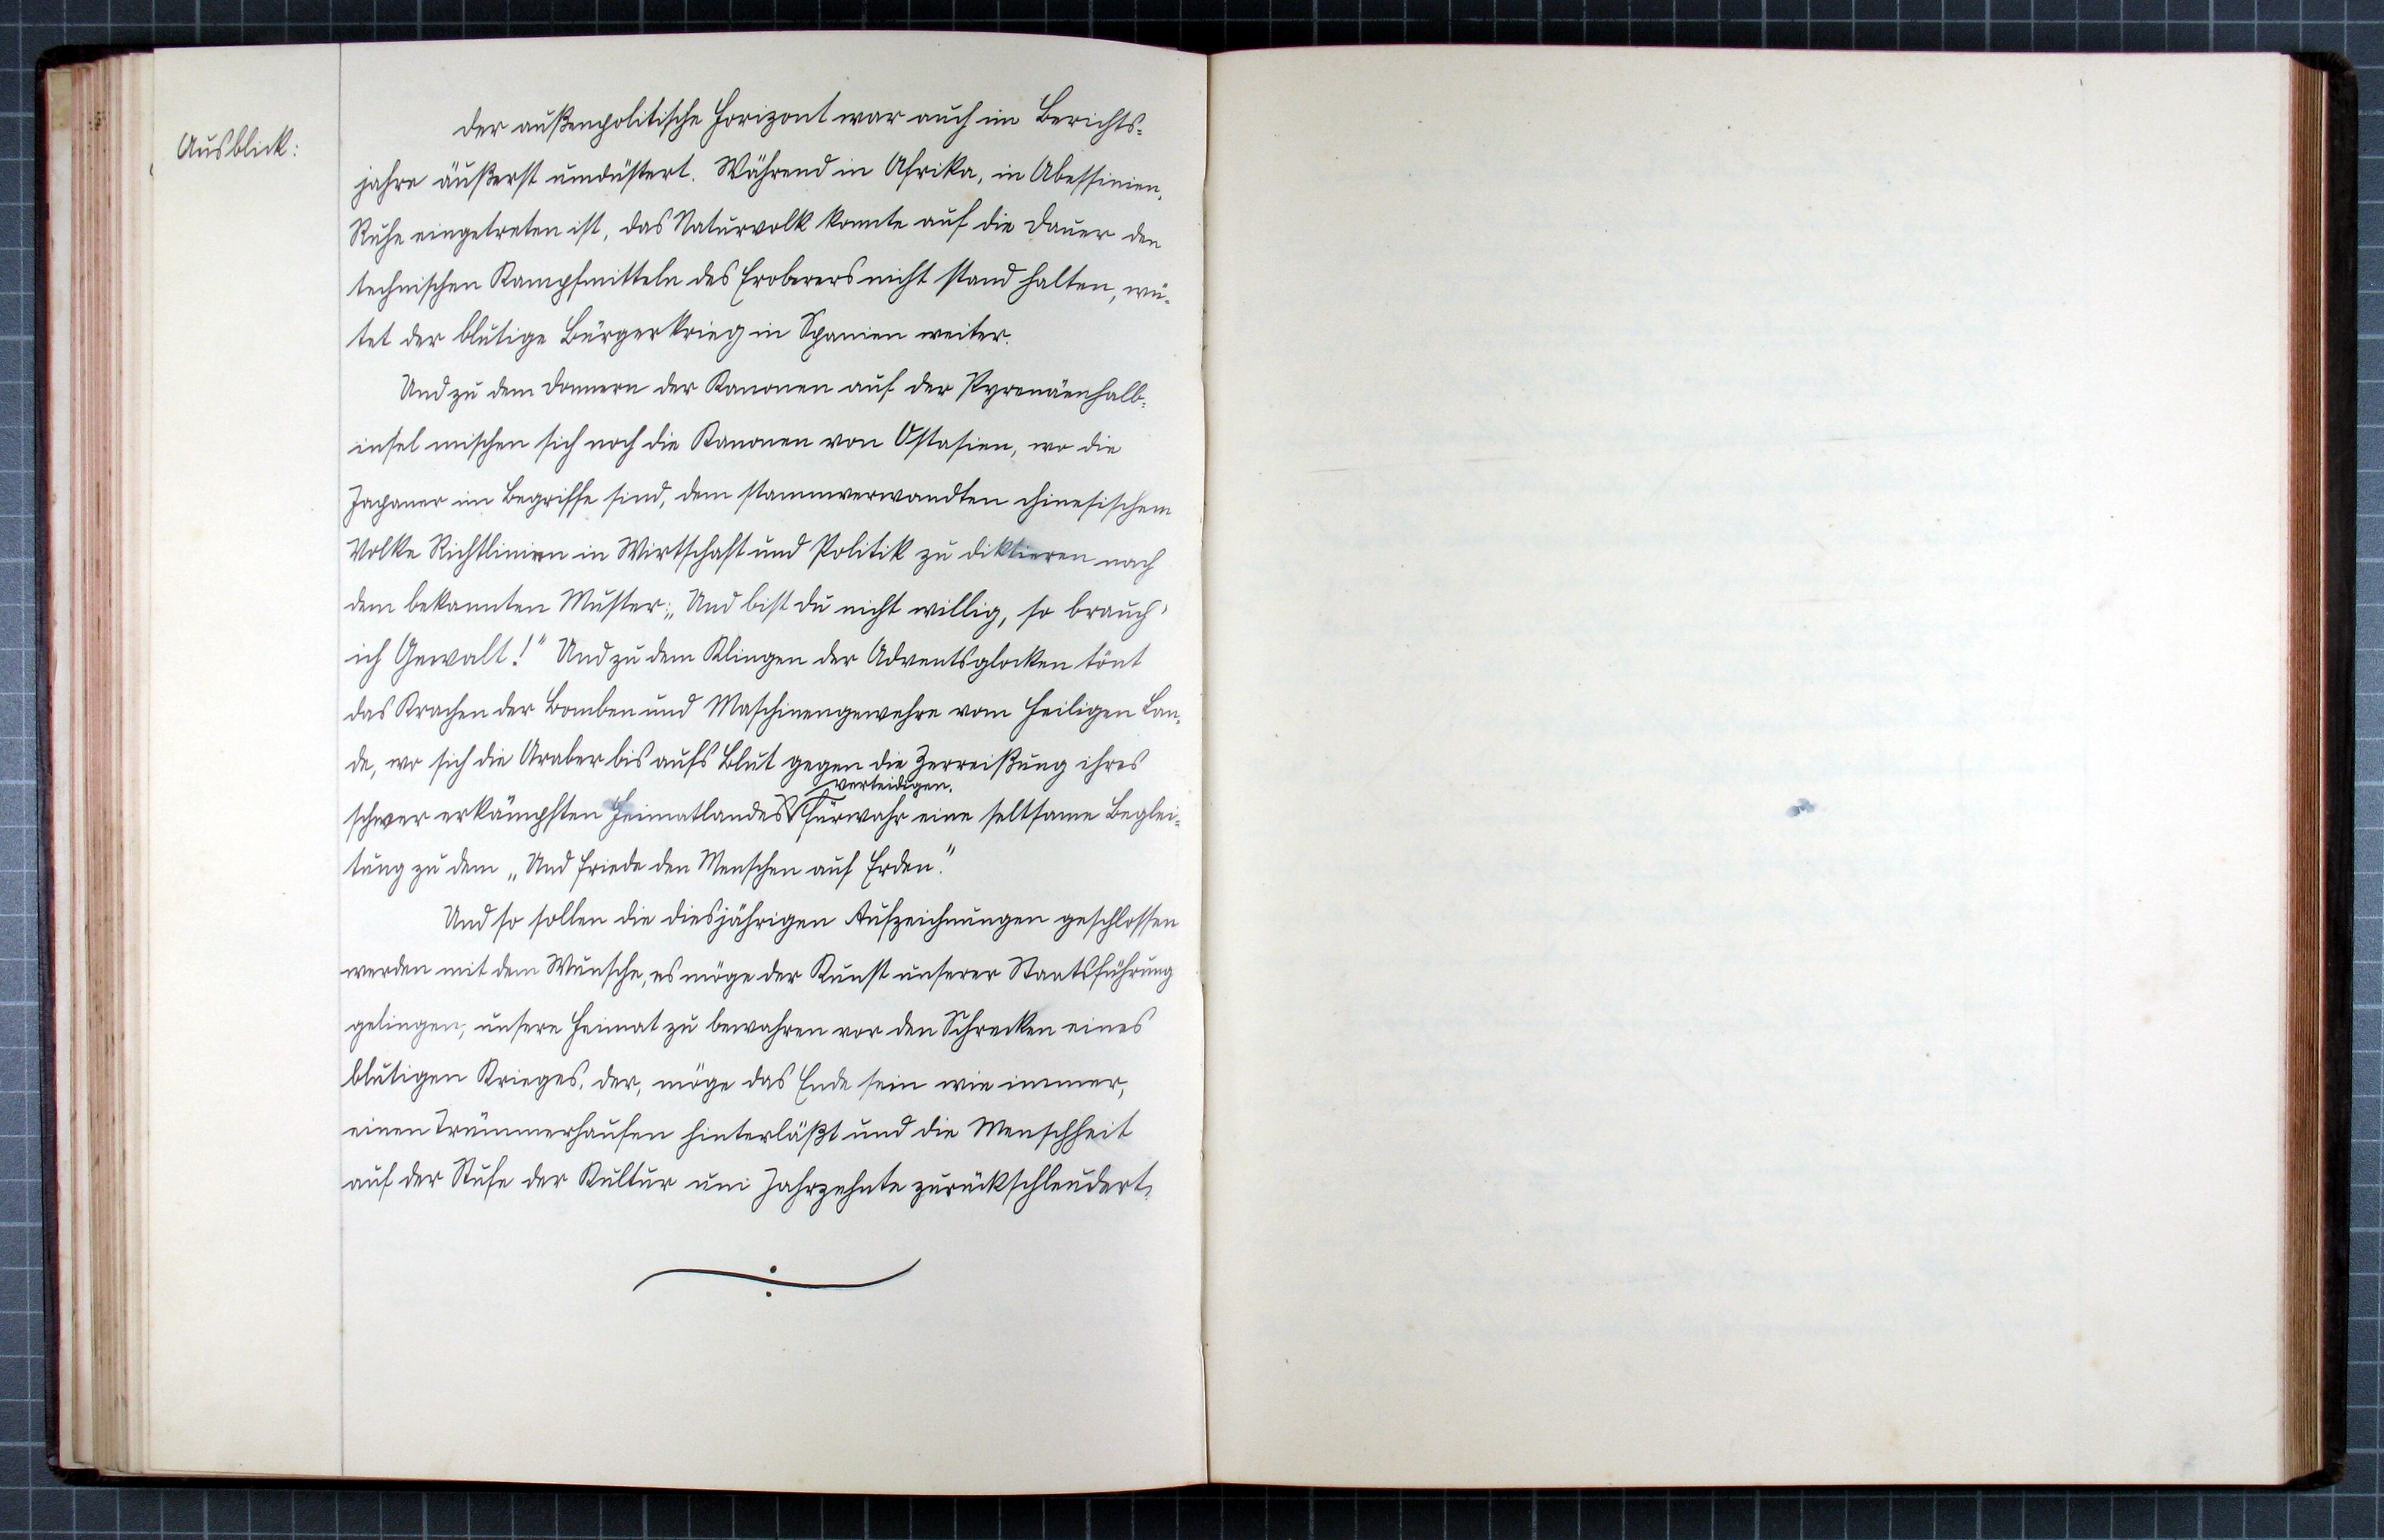 Ausblick:
Der außenpolitische Horizont war auch im Berichts-
jahre äußerst umdüstert. Während in Afrika, in Abessinien,
Ruhe eingetreten ist, das Naturvolk konnte auf die Dauer den
technischen Kampfmitteln des Eroberers nicht stand halten, wü-
tet der blutige Bürgerkrieg in Spanien weiter.
Und zu dem Donnern der Kanonen auf der Pyrenäenhalb-
insel mischen sich noch die Kanonen von Ostasien, wo die
Japaner im Begriffe sind, dem stammverwandten chinesischem
Volke Richtlinien in Wirtschaft und Politik zu diktieren nach
dem bekannten Muster: „Und bist du nicht willig, so brauch'
ich Gewalt!" Und zu dem Klingen der Adventsglocken tönt
das Krachen der Bomben und Maschinengewehre vom Heiligen Lan-
de, wo sich die Araber bis aufs Blut gegen die Zerreißung ihres
verteidigen.
schwer erkämpften Heimatlandes Fürwahr eine seltsame Beglei-
tung zu dem „Und Friede den Menschen auf Erden".
Und so sollen die diesjährigen Aufzeichnungen geschlossen
werden mit dem Wunsche, es möge der Kunst unserer Staatsführung
gelingen, unsere Heimat zu bewahren vor den Schrecken eines
blutigen Krieges, der, möge das Ende sein wie immer,
einen Trümmerhaufen hinterläßt und die Menschheit
auf der Stufe der Kultur um Jahrzehnte zurückschleudert.